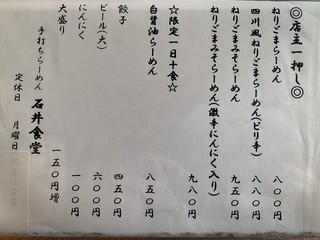 ◎店主一押し◎
ねりごまらーめん 八〇〇円
四川風ねりごまらーめん(ピリ辛) 八八〇円
ねりごまみそらーめん 九五〇円
ねりごまみそらーめん(激辛にんにく入り) 九八〇円
☆限定一日十食☆
白醤油らーめん 八五〇円
餃子 四五〇円
ビール(大) 六〇〇円
にんにく 一〇〇円
大盛り 一五〇円増
手打ちらーめん 石井食堂
定休日 月曜日